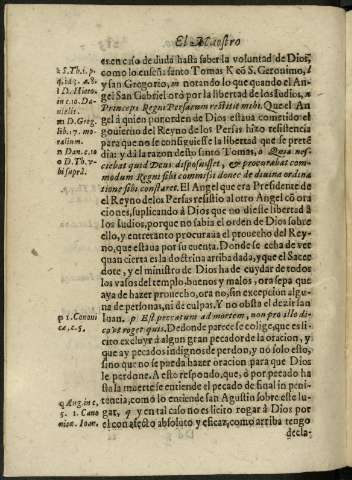 El Maestro
es, en caso de duda hasta saber la voluntad de Dios,
como lo enseña santo Tomas K cō S. Geronimo, l
y san Gregorio, m notando lo que quando el An-
gel San Gabriel oró por la libertad de los Iudios, n
Princeps Regni Persarum restitit mihi. Que el An-
gel à quien por orden de Dios estaua cometido el
gouierno del Reyno de los Persas hizo resistencia
para que no se consiguiesse la libertad que se pretē-
dia: y dà la razon desto santo Tomas, o Quia nes-
ciebat quid Deus disposuisset, & procurabat com-
modum Regni sibi commissi donec de diuina ordina
tione sibi constaret. El Angel que era Presidente de
el Reyno de los Persas resistio al otro Angel cō ora
ciones, suplicando à Dios que no diesse libertad à
los Iudios, porque no sabia el orden de Dios sobre
ello, y entretanto procuraua el prouecho del Rey-
no, que estaua por su cuenta. Donde se echa de ver
quan cierta es la dotrina arriba dada, y que el Sacer
dote, y el ministro de Dios ha de cuydar de todos
los vasos del templo, buenos y malos, ora sepa que
aya de hazer prouecho, ora no, sin excepcion algu-
na de personas, ni de culpas. Y no obsta el dezir san
Iuan. p Est peccatum ad mortem, non pro illo di-
co vt roget quis. De donde parece se colige, que es li
cito excluyr à algun gran pecador de la oracion, y
que ay pecados indignos de perdon, y no solo esto,
sino que no se pueda hazer oracion para que Dios
le perdone. A esto respondo, que, ò por pecado ha
sta la muerte se entiende el pecado de final im peni-
tencia, como lo entiende san Agustin sobre este lu-
gar, q y en tal caso no es licito rogar à Dios por
el con afecto absoluto y eficaz, como arriba tengo
decla-
k S. Th. 1. p.
l D. Hiero.
in c. 10. Da-
nielis.
m D. Greg.
lib. 17. mo-
ralium.
n Dan. c. 10
o D. Th. v-
bi suprà.
p 1. Canoni
cæ, c. 5.
q Aug. in c.
5. 1. Cano
nicæ. Ioan.